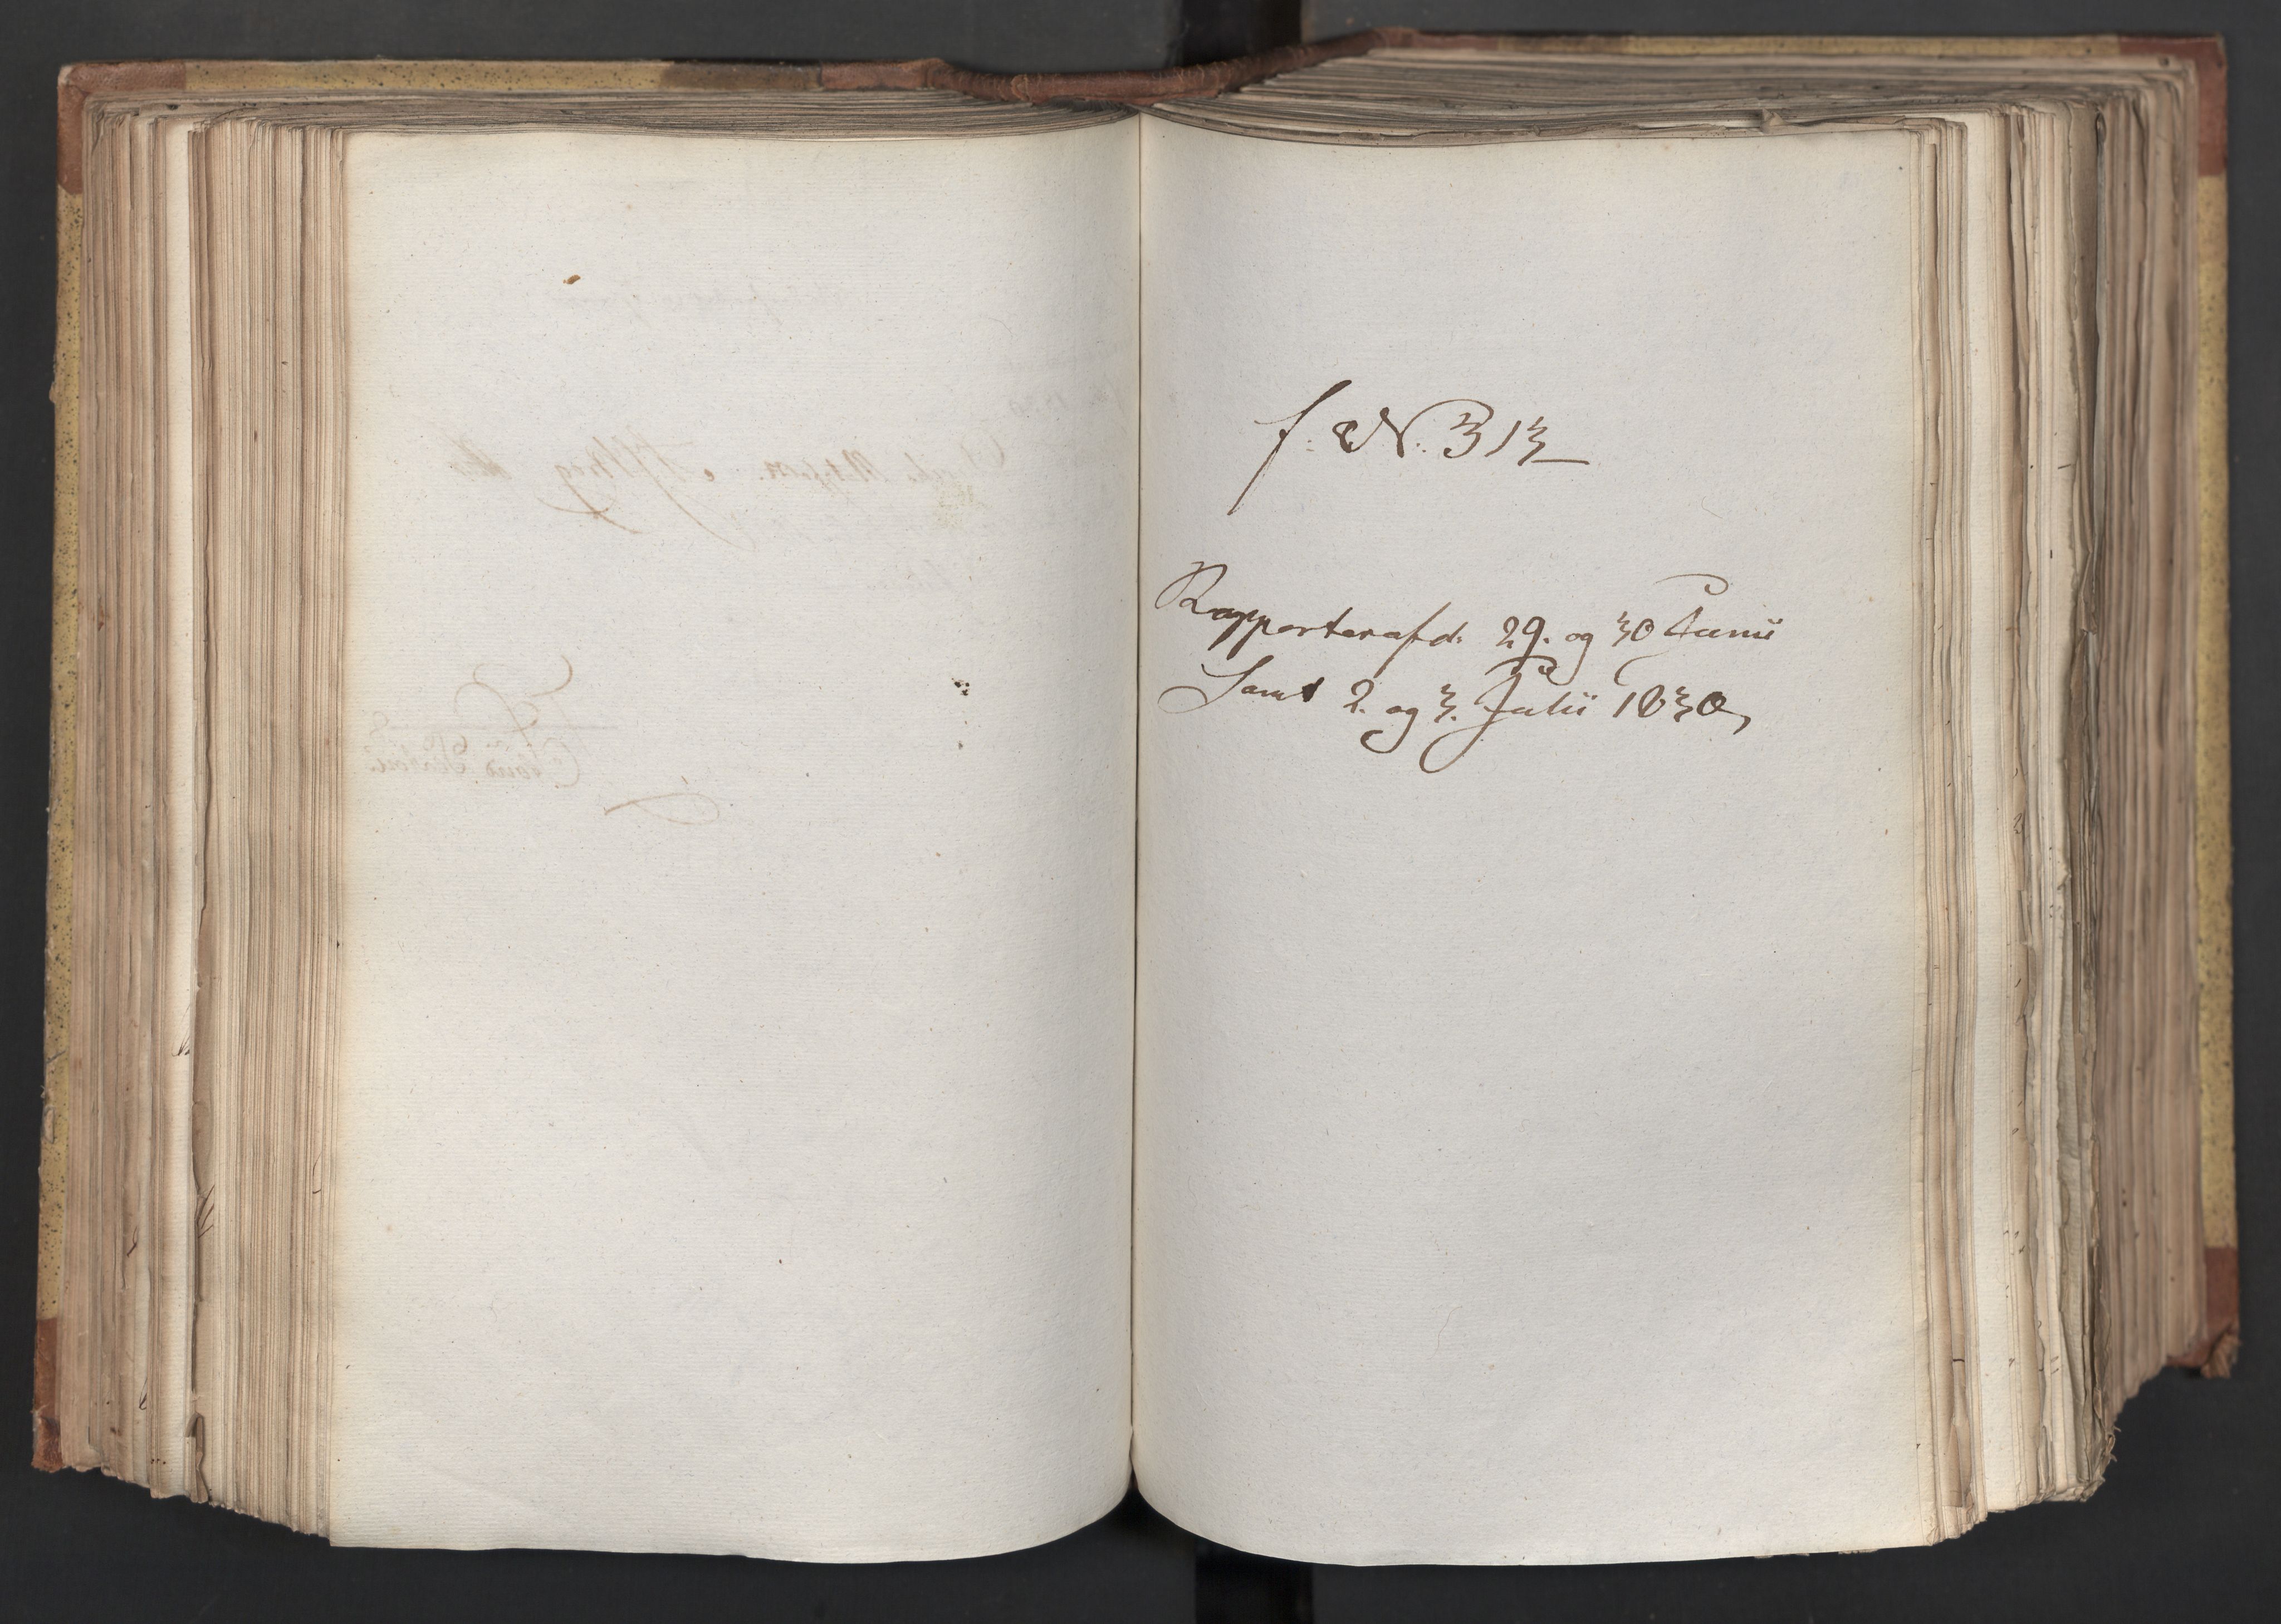 f. N. 313
Rapporter af d. 29. og 30 Junii
Samt 2. og 3. Julii 1830,